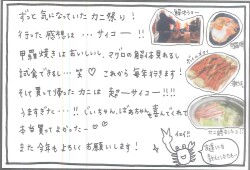 ずっと気になっていたカニ祭り！
行った感想は・・・サイコー！！
甲羅焼きはおいしいし、マグロの解体見れるし
試食できるし・・・笑 これから毎年行きます！
そして買って帰ったカニは 超〜サイコー！！
うますぎた・・・！！じぃちゃん、ばぁちゃんも喜んでくれて
本当買ってよかったー
また今年もよろしくお願いします！
解体ショー
カニ